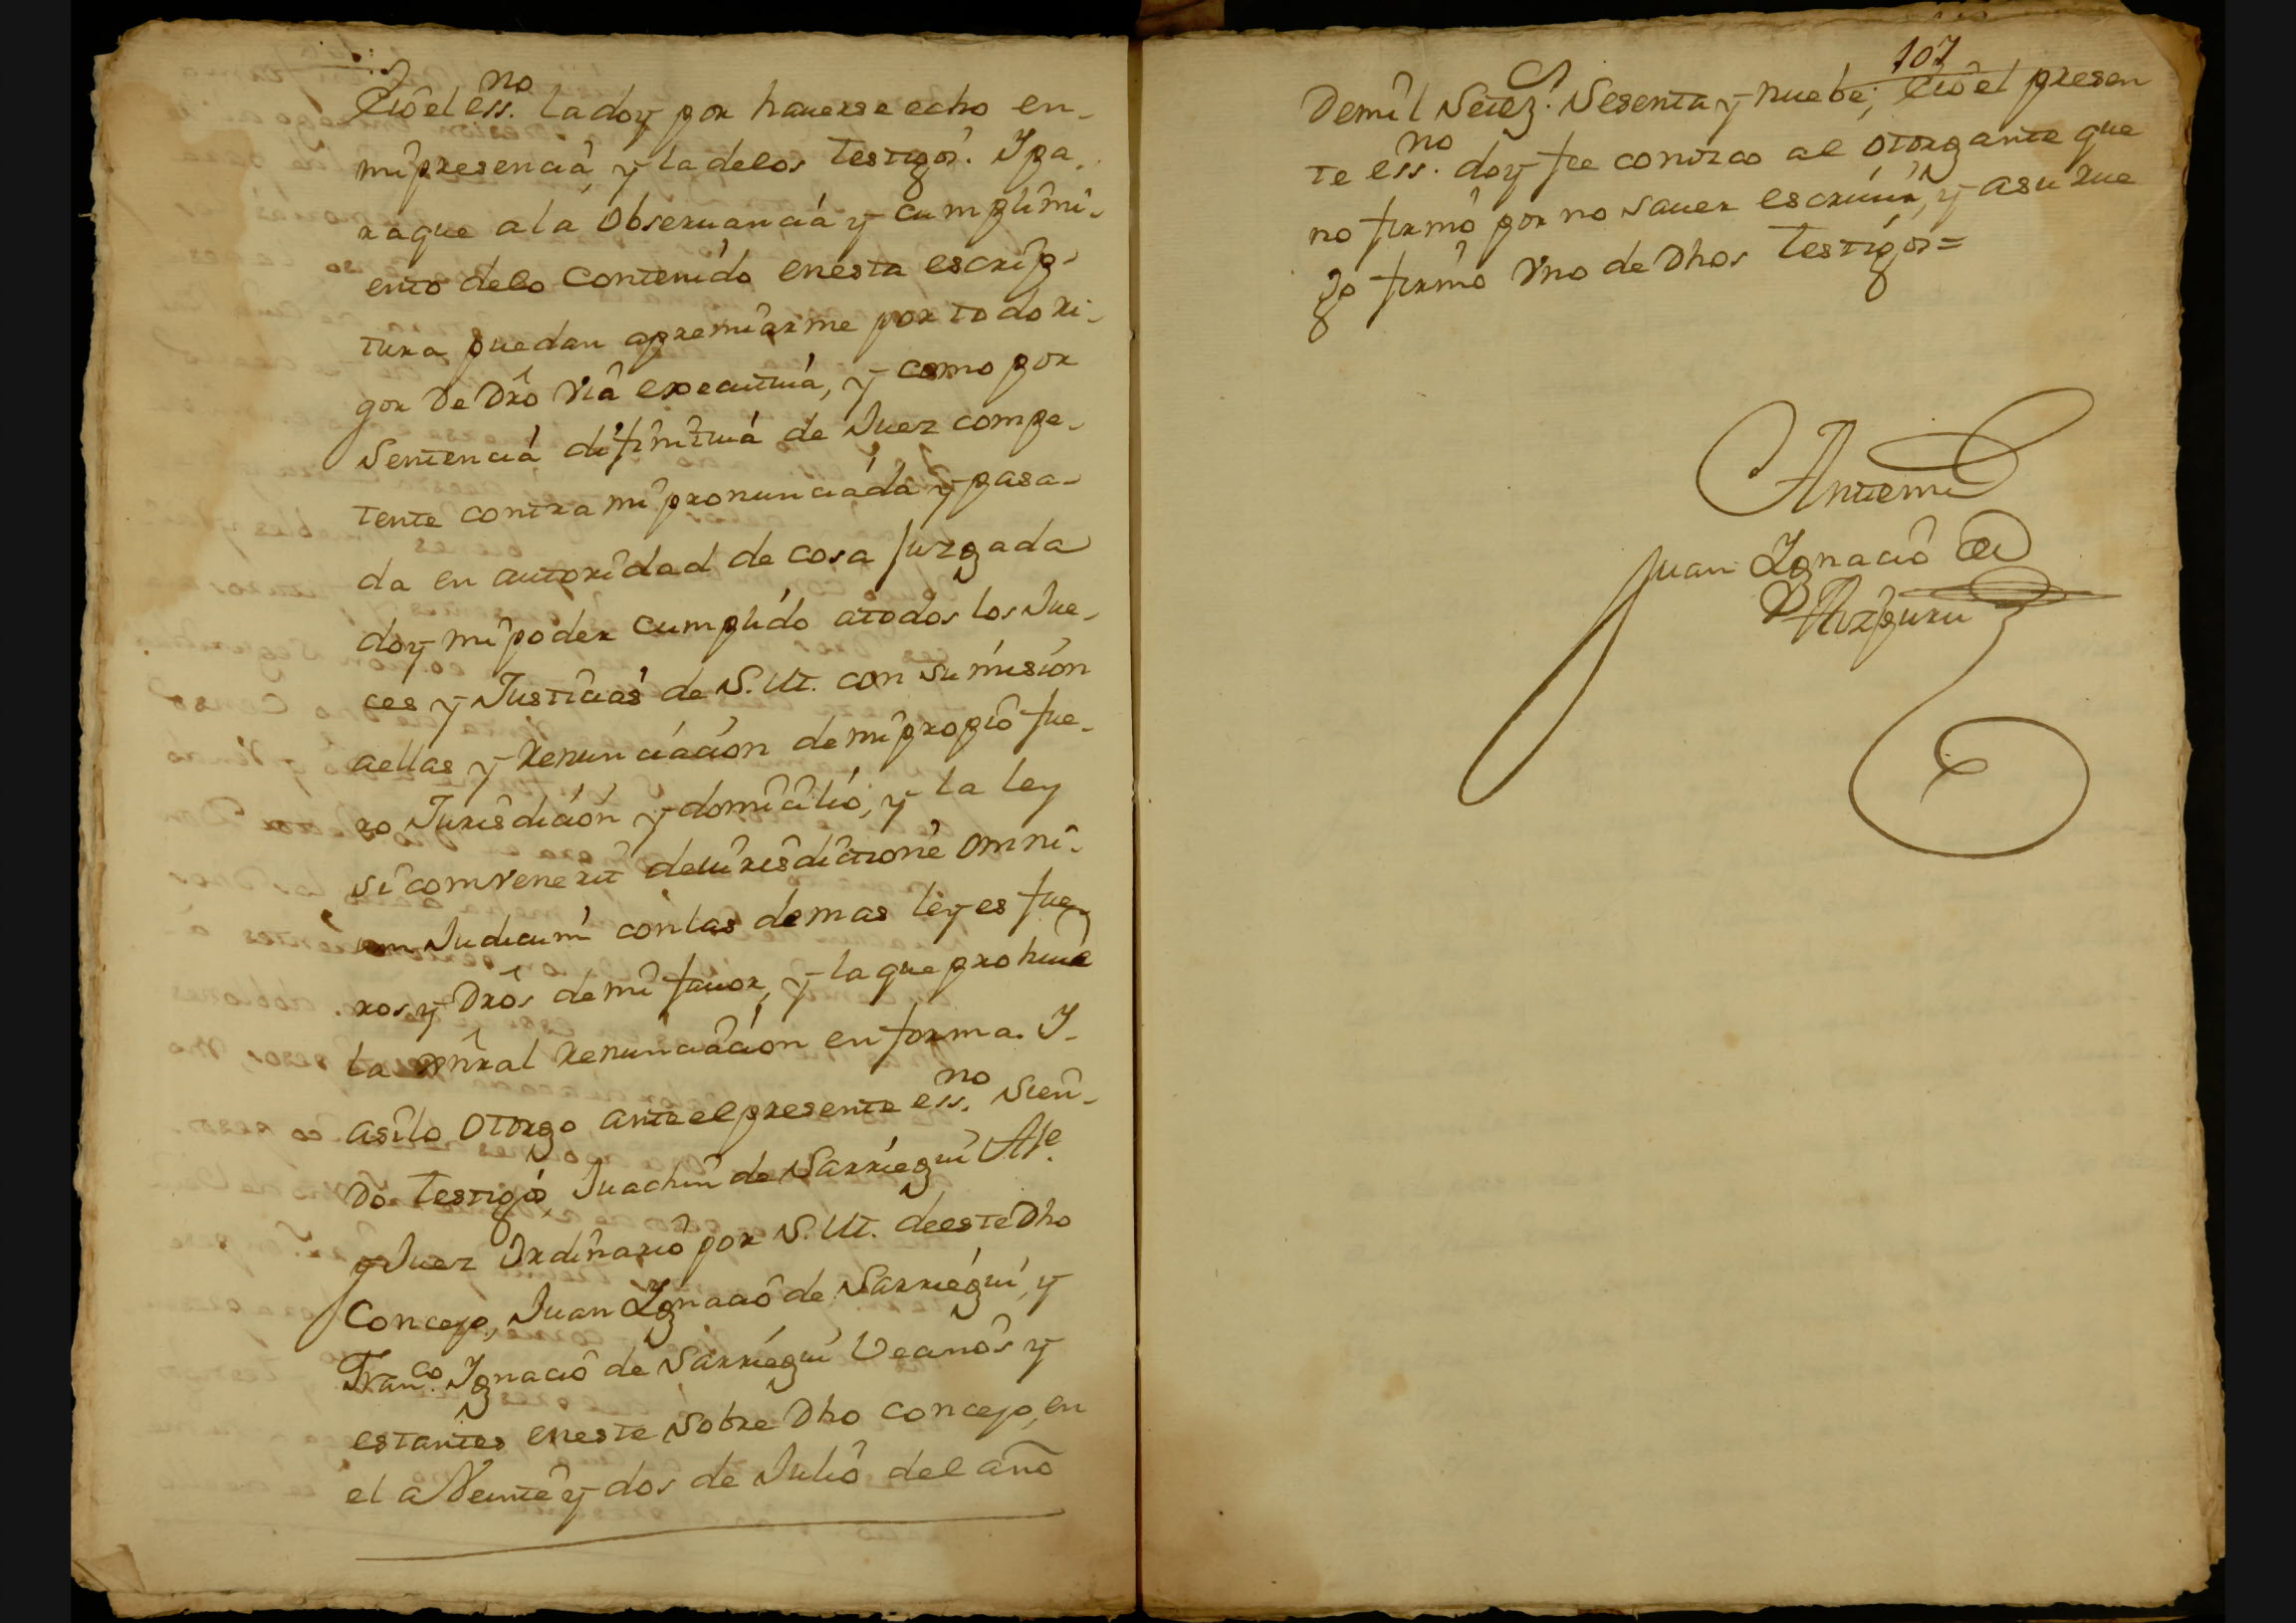 Eio el ess.no la doy por hauerse echo en-
mi presencia, y la delos testigos. Ipa-
raque ala obseruancia y cumplimi-
ento delo contenido enesta escrip-
tura puedan apremiarme por todo ri-
gor de Dro via executiua, y como por
sentencia difinitiua de Juez compe-
tente contra mi pronunciada y pasa-
da en autoridad de cosa Juzgada
doy mi poder cumplido atodos los Jue-
ces y Justicias de S.M. con sumision
aellas y Renunciacion de mi propio fue-
ro Jurisdicion y domicilio, y la ley
si comvenerit deiurisdictione omni-
um Judicum con las demas leyes fue-
ros y Dros demi fauor, y la que prohiue
la gnral Renunciacion en forma. I-
asilo otorgo ante el presente ess.no sien-
do testigos, Juachin de Sarriegui Al.e
y Juez Ordinario por S.M. deeste Dho
Concejo, Juan Ignacio de Sarriegui, y
Fran.co Ignacio de Sarriegui Vecinos y
estantes eneste sobre Dho concejo, en
el a Veinte y dos de Julio del año
107
Demil Setez.s Sesenta y nuebe; Eio el presen
te ess.no doy fee conozco al otorgante que
no firmo por no sauer escriuir, y asu rue
go firmo Vno de Dhos testigos=
Antemi
Juan Ignacio de
Aizpuru